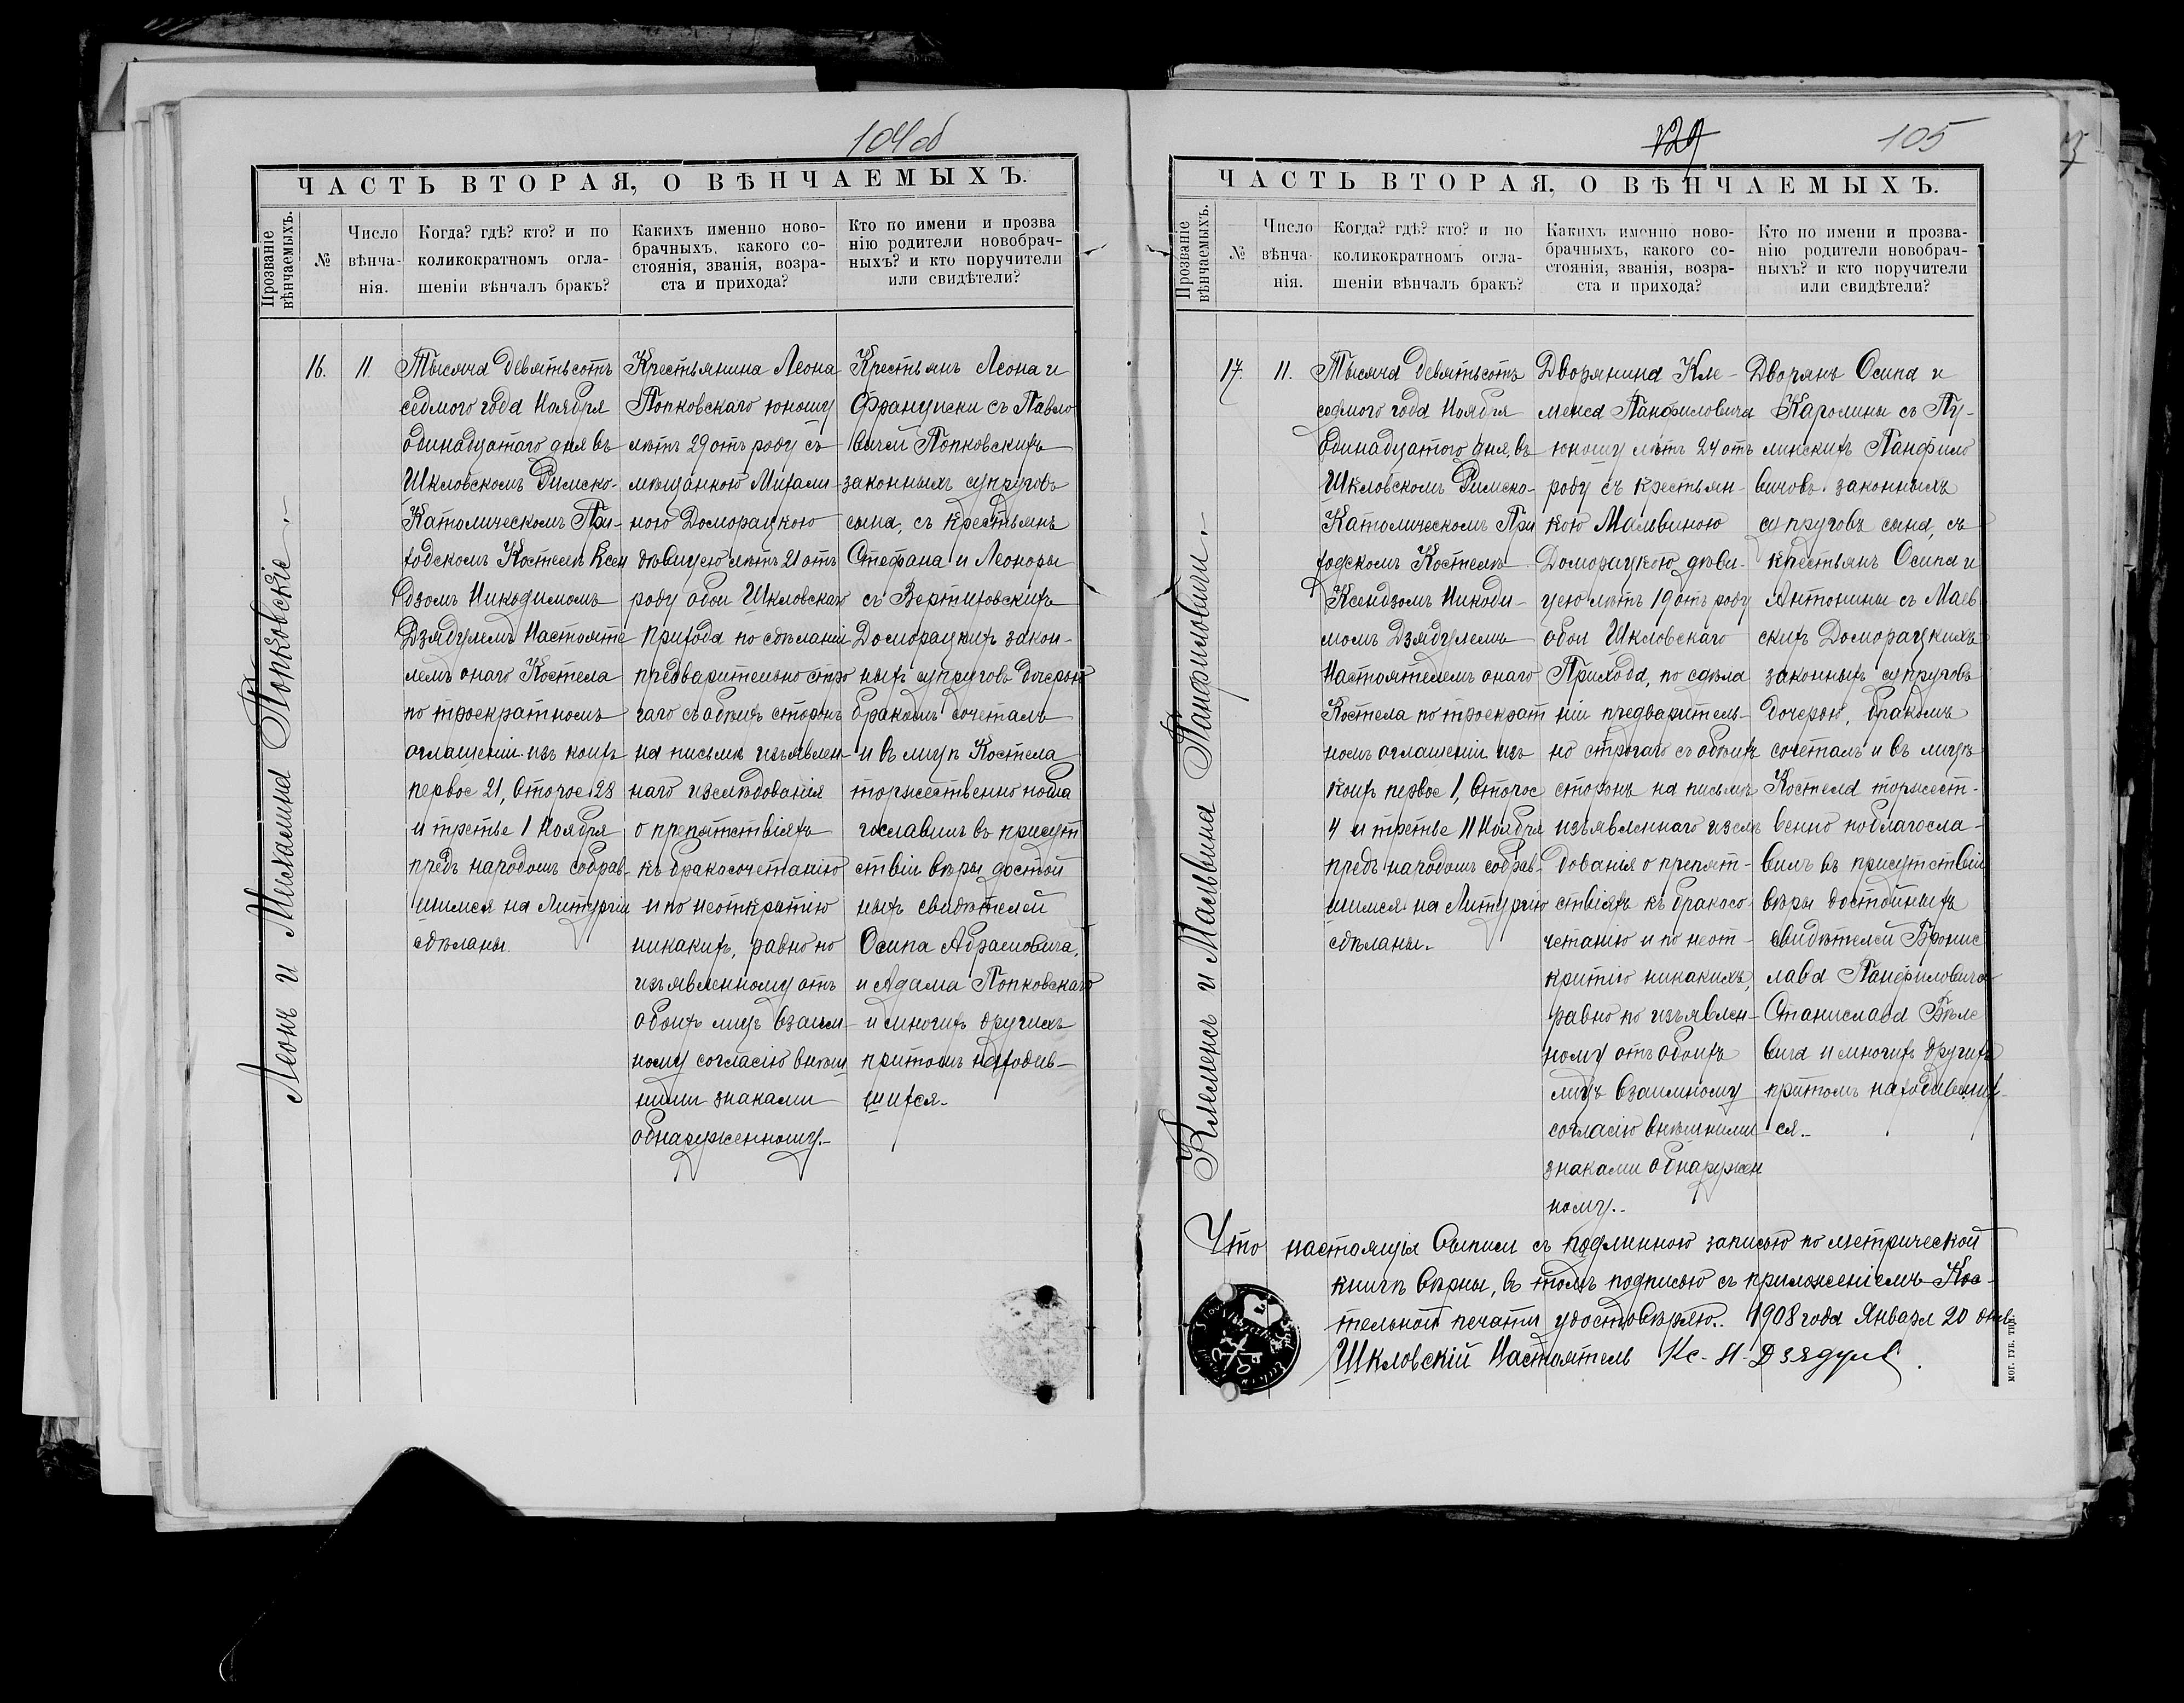 104об
ЧАСТЬ ВТОРАЯ, О ВѢНЧАЕМЫХЪ.
Прозваніе
вѣнчаемыхъ.
№
Число
вѣнча-
нія.
Когда? гдѣ? кто? и по
коликократномъ огла-
шеніи вѣнчалъ бракъ?
Какихъ именно ново-
брачныхъ, какого со-
стоянія, званія, возра-
ста и прихода?
Кто по имени и прозва
нію родители новобрач-
ныхъ? и кто поручители
или свидѣтели?
Леонъ и Михалина Попковскіе.-
16.
11.
Тысяча девятьсотъ
седмого года Ноября
одинадцатаго дня въ
Шкловскомъ Римско-
Католическомъ При-
ходскомъ Костелѣ Ксен
дзомъ Никодимомъ
Дзядулемъ Настояте
лемъ онаго Костела
по троекратномъ
оглашеніи изъ коихъ
первое 21, второе 28
и третье 1 Ноября
предъ народомъ собрав-
шимся на Литургіи
сдѣланы.
Крестьянина Леона
Попковскаго юношу
лѣтъ 29 отъ роду съ
мѣщанкою Михали-
ною Доморацкою
дѣвицею лѣтъ 21 отъ
роду обои Шкловскаго
прихода по сдѣланіи
предварительно стро
гаго съ обѣихъ сторонъ
на письмѣ изъявлен-
наго изслѣдованія
о препятствіяхъ
къ бракосочетанію
и по неоткрытію
никакихъ, равно по
изъявленному отъ
обоихъ лицъ взаим-
ному согласію внѣш
ними знаками
обнаруженному.-
Крестьянъ Леона и
Франциски съ Павло
вичей Попковскихъ
законныхъ супруговъ
сына, съ крестьянъ
Стефана и Леоноры
съ Вертиховскихъ
Доморацкихъ закон-
ныхъ супруговъ дочерью
бракомъ сочеталъ
и въ лицѣ Костела
торжественно побла
гословилъ въ присут
ствіи вѣры достой
ныхъ свидѣтелей
Осипа Абрамовича,
и Адама Попковскаго
и многихъ другихъ
притомъ находив-
шихся.-
129
105
ЧАСТЬ ВТОРАЯ, О ВѢНЧАЕМЫХЪ.
Прозваніе
вѣнчаемыхъ.
№
Число
вѣнча-
нія.
Когда? гдѣ? кто? и по
коликократномъ огла-
шеніи вѣнчалъ бракъ?
Какихъ именно ново-
брачныхъ, какого со-
стоянія, званія, возра-
ста и прихода?
Кто по имени и прозва-
нію родители новобрач-
ныхъ? и кто поручители
или свидѣтели?
Клеменсъ и Мальвина Панфиловичи.-
17.
11.
Тысяча девятьсотъ
седмого года Ноября
одинадцатого дня, въ
Шкловскомъ Римско-
Католическомъ При
ходскомъ Костелѣ
Ксендзомъ Никоди-
момъ Дзядулемъ
Настоятелемъ онаго
Костела по троекрат
номъ оглашеніи изъ
коихъ первое 1, второе
4 и третье 11 Ноября
предъ народомъ собрав-
шимся на Литургію
сдѣланы.
Дворянина Кле-
менса Панфиловича
юношу лѣтъ 24 отъ
роду съ крестьян-
кою Мальвиною
Доморацкою дѣви-
цею лѣтъ 19 отъ роду
обои Шкловскаго
Прихода, по сдѣла
ніи предваритель-
но строгаго съ обѣихъ
сторонъ на письмѣ
изъявленнаго изслѣ
дованія о препят-
ствіяхъ къ бракосо
четанію и по неот-
крытію никакихъ,
равно по изъявлен-
ному отъ обоихъ
лицъ взаимному
согласію внѣшними
знаками обнаружен
ному.-
Дворянъ Осипа и
Каролины съ Пу-
линскихъ Панфило
вичовъ законныхъ
супруговъ сына, съ
крестьянъ Осипа и
Антонины съ Маев
скихъ Доморацкихъ
законныхъ супруговъ
дочерью, бракомъ
сочеталъ и въ лицѣ
Костела торжест-
венно поблагосла-
вилъ въ присутствіи
вѣры достойныхъ
свидѣтелей Бронис
лава Панфиловича
Станислава Бѣле
вича и многихъ другихъ
притомъ находивших-
ся.-
Что настоящія выписи съ подлинною записью по метрической
книгѣ вѣрны, въ томъ подписью съ приложеніемъ Кос-
тельной печати удостовѣряю. 1908 года Января 20 дня
Шкловскій Настоятель Кс. Н. Дзядуль.
МОГ. ГУБ. ТИП.